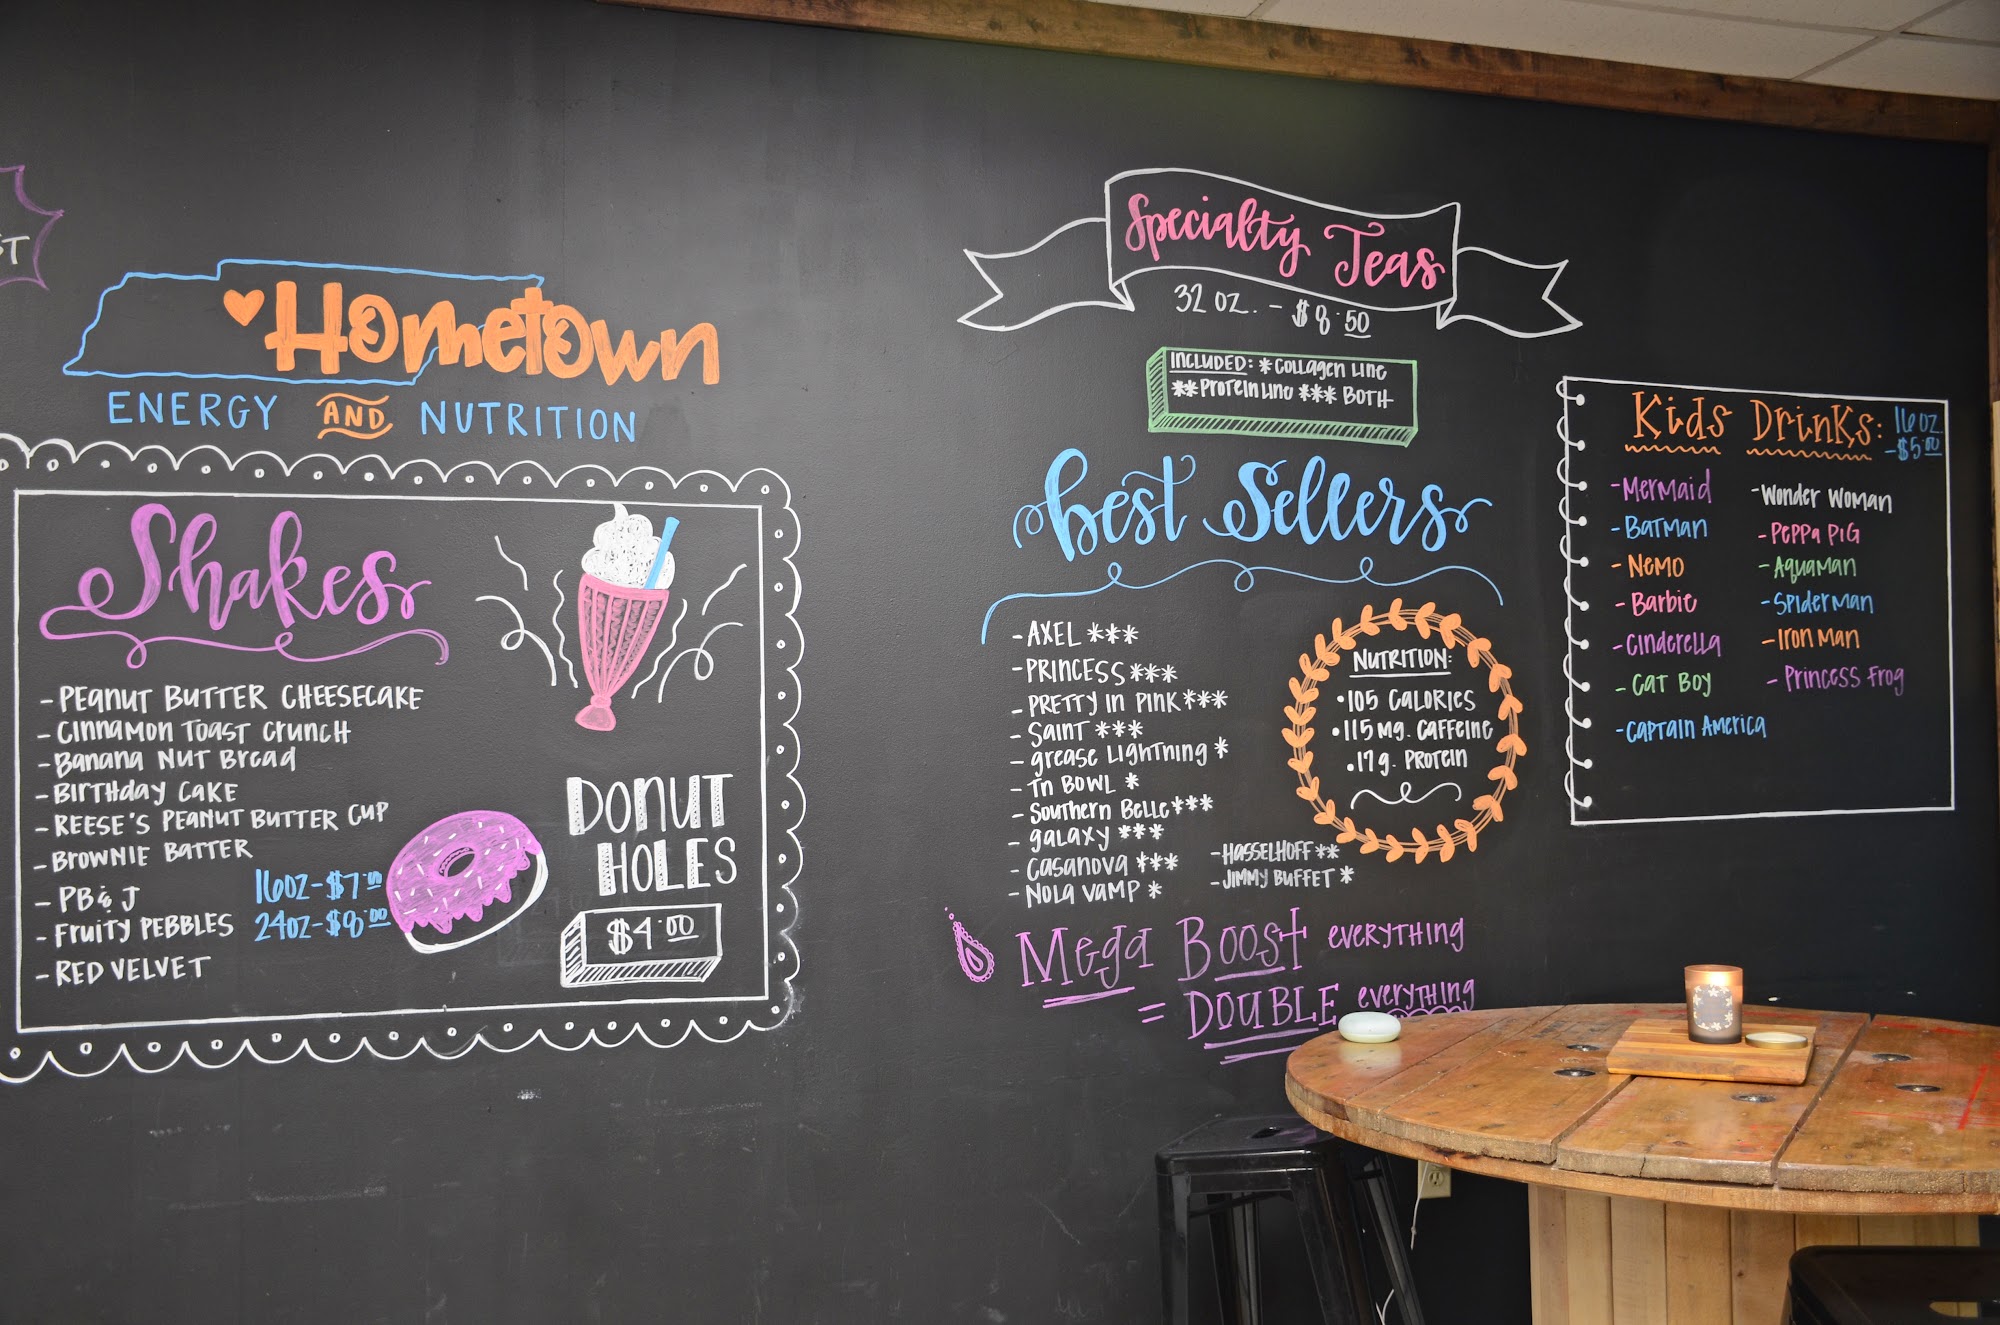 Hometown
ENERGY AND NUTRITION
Shakes
- PEANUT BUTTER CHEESECAKE
- CINNAMON TOAST CRUNCH
- BANANA NUT BREAD
- BIRTHDAY CAKE
- REESE'S PEANUT BUTTER CUP
- BROWNIE BATTER
- PB & J
- FRUITY PEBBLES
- RED VELVET
16OZ-$7
24OZ-$8.00
DONUT
HOLES
$4.00
Specialty Teas
32 OZ. - $8.50
INCLUDED: *COLLAGEN LINE
**PROTEIN LINE ***BOTH
Best Sellers
- AXEL ***
- PRINCESS ***
- PRETTY IN PINK ***
- SAINT ***
- GREASE LIGHTNING *
- TN BOWL *
- SOUTHERN BELLE ***
- GALAXY ***
- CASANOVA ***
- NOLA VAMP *
- HASSELHOFF **
- JIMMY BUFFET *
NUTRITION:
• 105 CALORIES
• 115 MG. CAFFEINE
• 17g. PROTEIN
MEGA BOOST EVERYTHING
= DOUBLE EVERYTHING
Kids Drinks: 16OZ.
-$5.00
- MERMAID
- BATMAN
- NEMO
- BARBIE
- CINDERELLA
- CAT BOY
- CAPTAIN AMERICA
- WONDER WOMAN
- PEPPA PIG
- AQUAMAN
- SPIDERMAN
- IRON MAN
- PRINCESS FROG